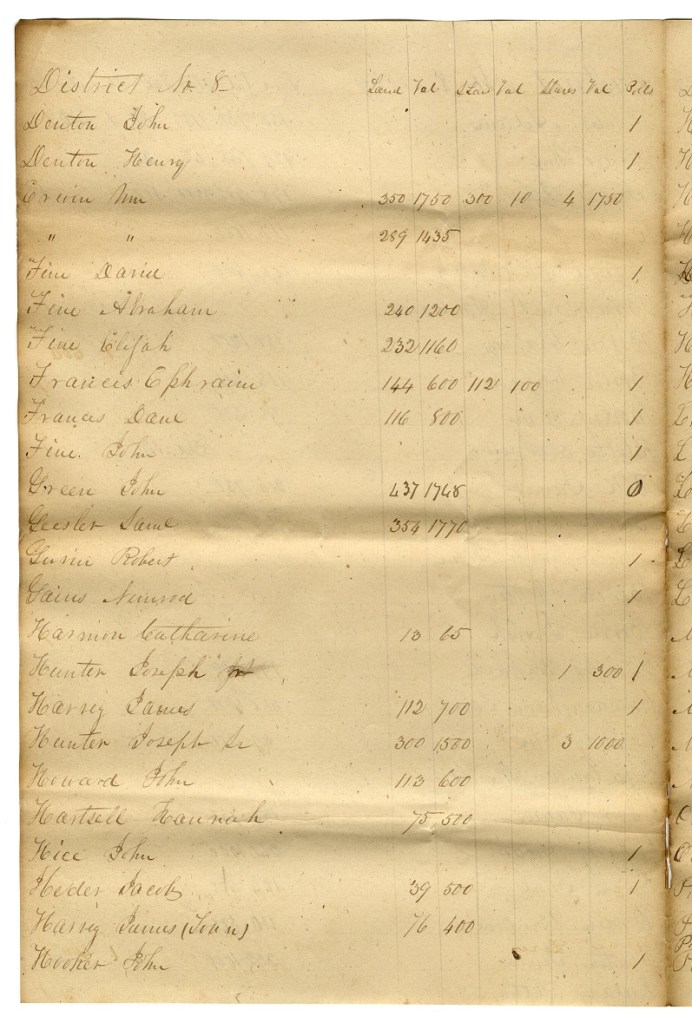 District No. 8 Land Val Val Slaves Val Polls
Denton John 1
Denton Henry 1
Erwin Wm 350 1750 300 10 4 1750
" " 289 1435
Fine David 1
Fine Abraham 240 1200
Fine Elijah 232 1160
Francis Ephraim 144 600 112 100 1
Francis 116 800 1
Fine. John 1
Green John 437 1748
Geesler Saml 354 1770
Robert 1
Gains Nimrod 1
Harmon Catharine 13 65
Hunter Joseph 1 300 1
James 112 700 1
Hunter Joseph Sr 300 1500 3 1000
Howard John 113 600
Hartsell Hannah 75 500
Hice John 1
Jacob 39 500 1
James 76 400
Hooker John 1